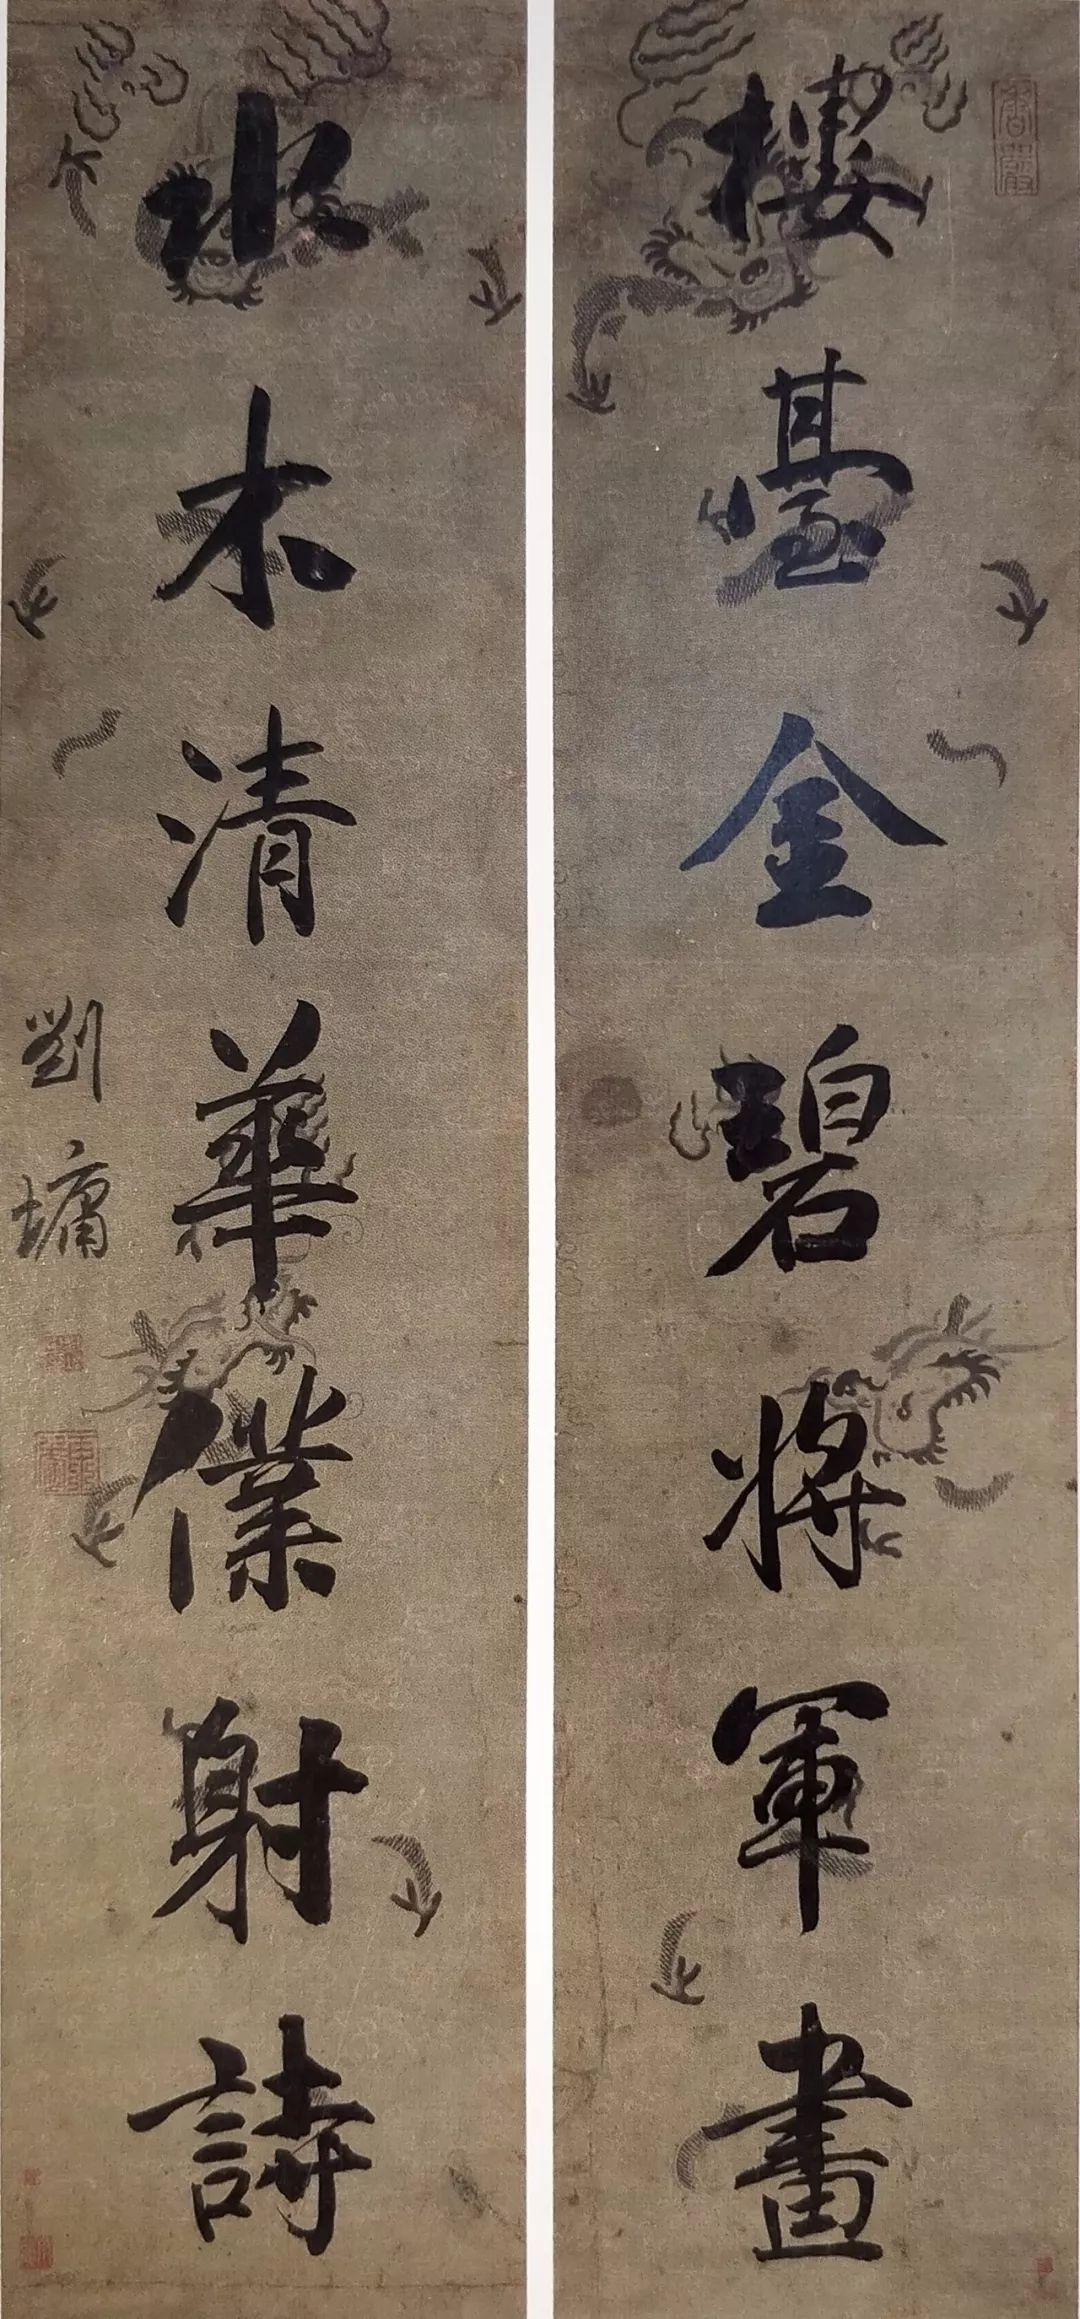 樓臺金碧將軍畫
水木清華僕射詩
劉墉